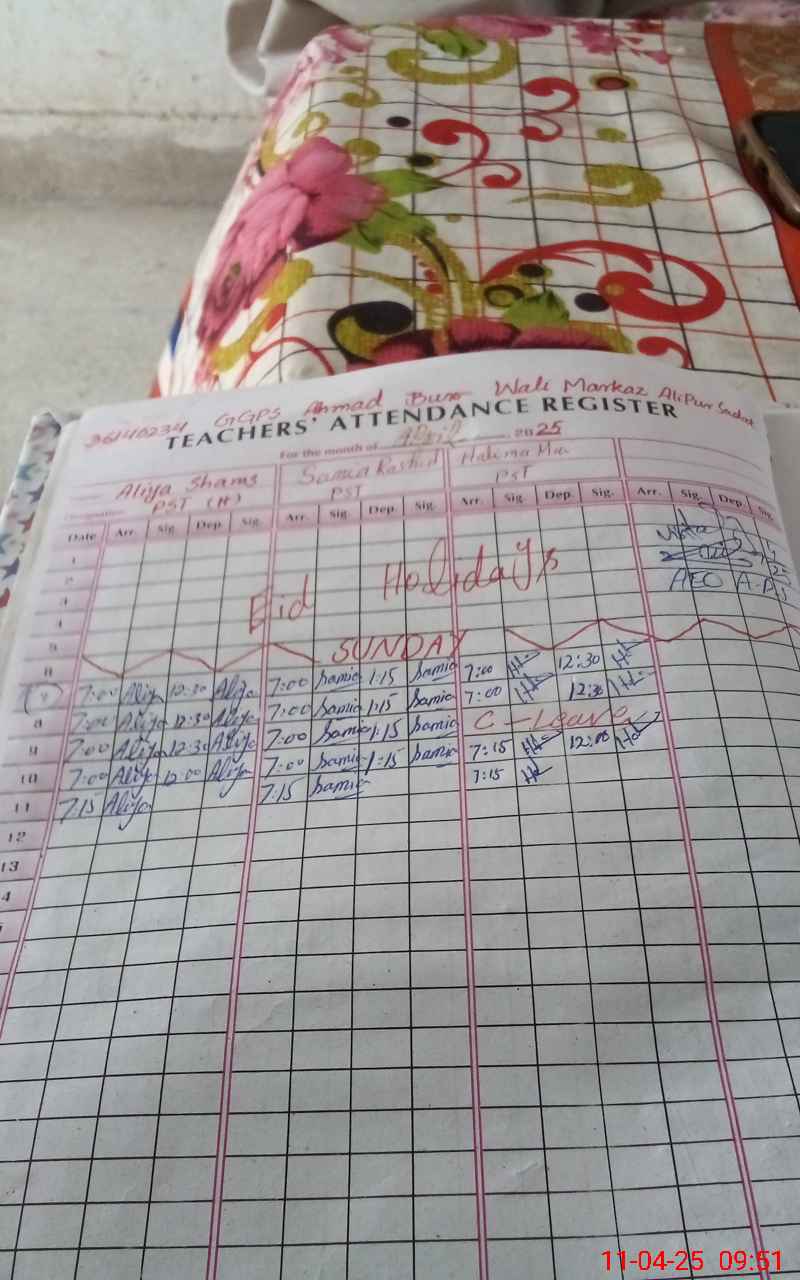 36140234 GGPS Ahmad Bux Wali Markaz AliPur Sadat
TEACHERS' ATTENDANCE REGISTER
For the month of April 2025
Aliya Shams Samia Rashid Halima
PST (H) PST PST
Date Arr. Sig. Dep. Sig. Arr. Sig. Dep. Sig. Arr. Sig. Dep. Sig. Arr. Sig. Dep. Sig.
1
2
3
4
Eid Holidays
AEO A.P.S
5
SUNDAY
6
7 7:00 Aliya 12:30 Aliya 7:00 Samia 1:15 Samia 7:00 12:30
8 7:00 Aliya 12:30 Aliya 7:00 Samia 1:15 Samia 7:00 12:30
9 7:00 Aliya 12:30 Aliya 7:00 Samia 1:15 Samia C-Leave
10 7:00 Aliya 12:00 Aliya 7:00 Samia 1:15 Samia 7:15 12:00
11 7:15 Aliya 7:15 Samia 7:15
12
13
4
11-04-25 09:51